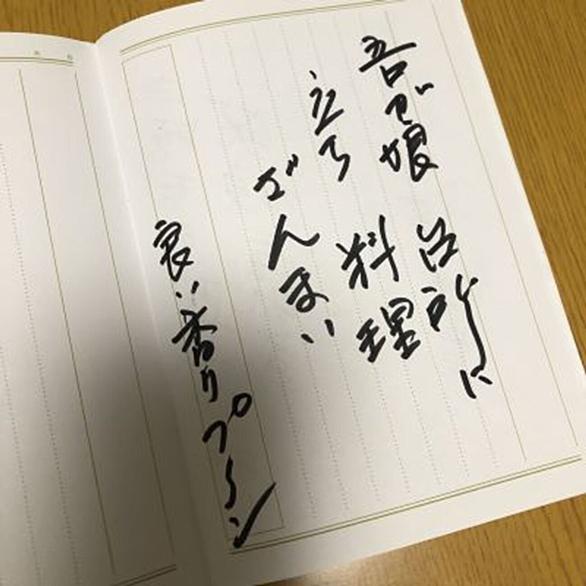 吾が娘 台所に
立ち 料理
ざんまい
良い香りプ〜ン